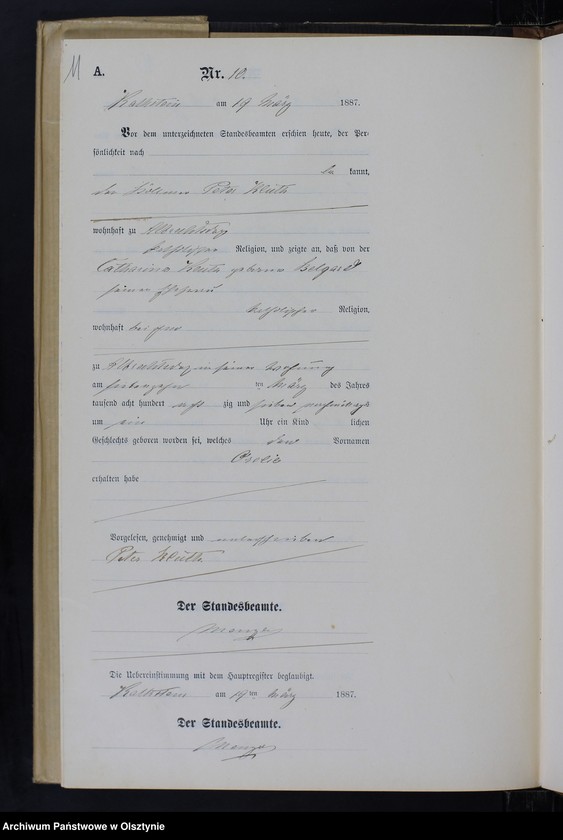 11
A.
Nr. 10.
Kalkstein am 19 März 1887.
Vor dem unterzeichneten Standesbeamten erschien heute, der Per-
sönlichkeit nach
be kannt,
der Peter Kluth
wohnhaft zu
katholischer Religion, und zeigte an, daß von der
Catharina Kluth geborene Belgardt
seiner Ehefrau
katholischer Religion,
wohnhaft bei ihm
zu in seiner Wohnung
am siebenzehn ten März des Jahres
tausend acht hundert acht zig und sieben nachmittags
um ein Uhr ein Kind lichen
Geschlechts geboren worden sei, welches den Vornamen
erhalten habe
Vorgelesen, genehmigt und unterschrieben
Peter Kluth
Der Standesbeamte.
Die Uebereinstimmung mit dem Hauptregister beglaubigt.
Kalkstein am 19ten März 1887.
Der Standesbeamte.
Archiwum Państwowe w Olsztynie